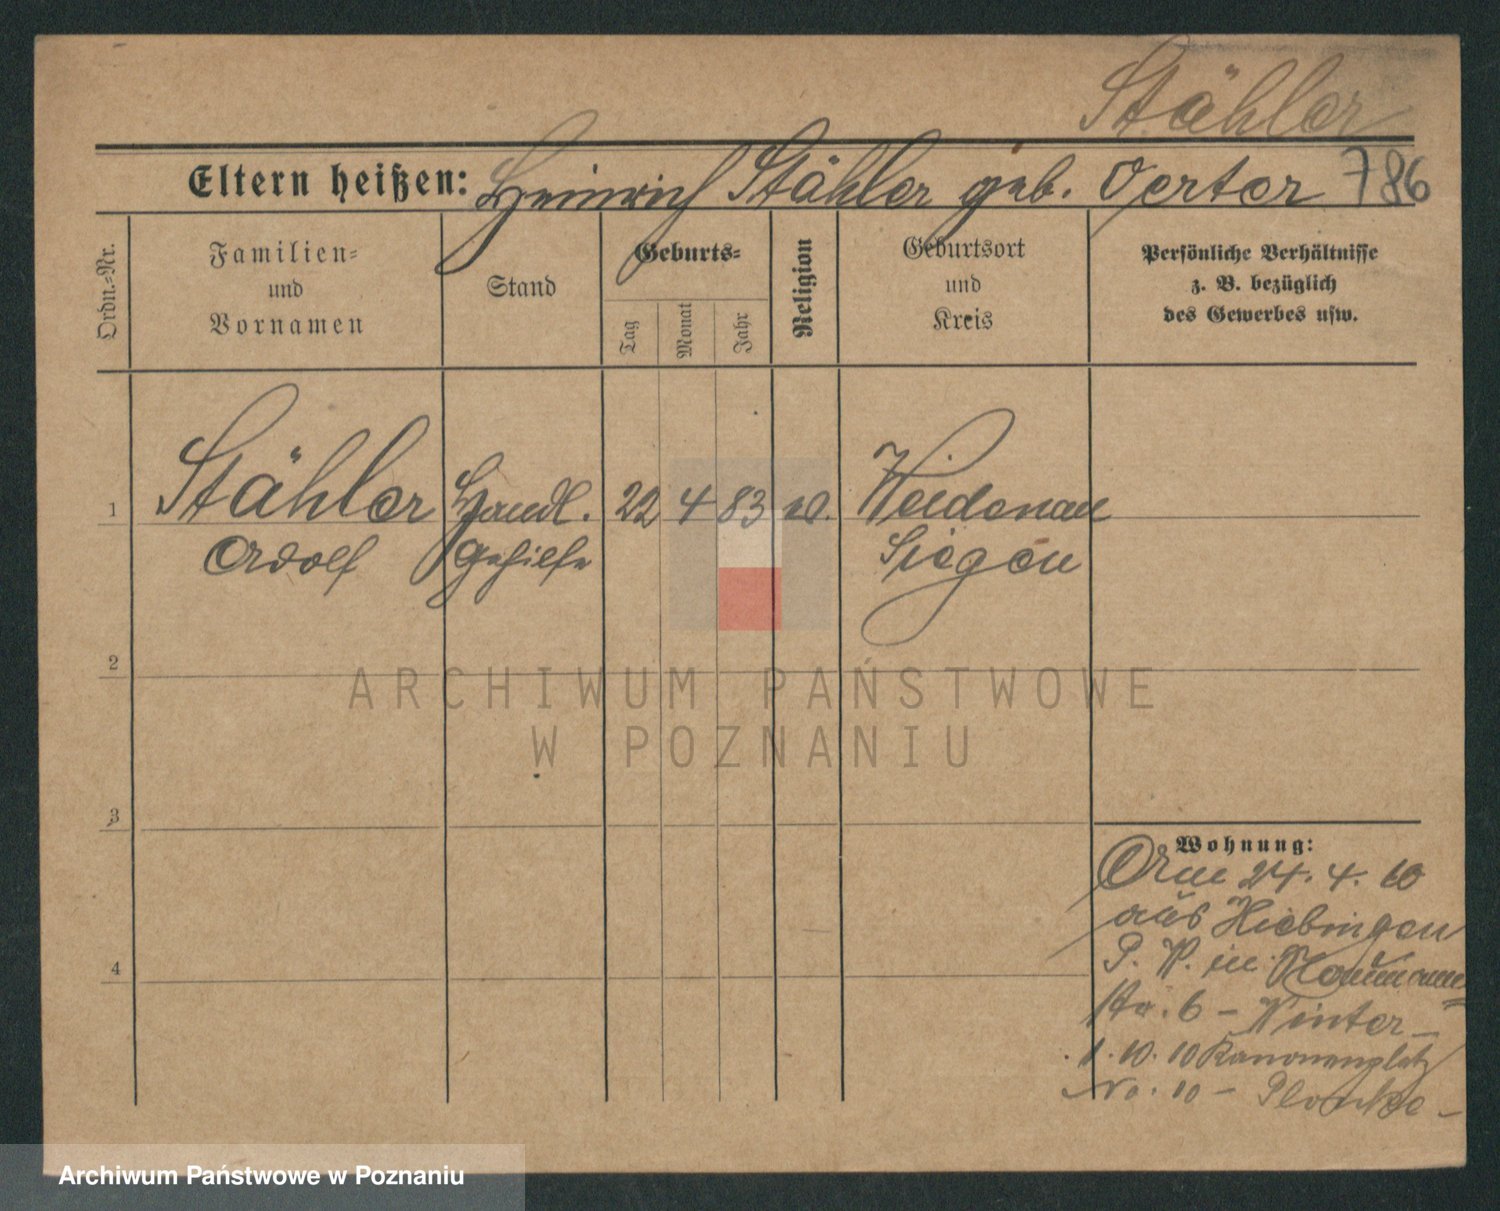 Stähler
Eltern heißen: Heinrich Stähler geb. Oerter 786
Ordn.=Nr.
Familien=
und
Vornamen
Stand
Geburts=
Tag
Monat
Jahr
Religion
Geburtsort
und
Kreis
Persönliche Verhältnisse
z. B. bezüglich
des Gewerbes usw.
1 Stähler Handl. 22 4 83 Weidenau
Adolf Gehilfe Siegen
2
ARCHIWUM PAŃSTWOWE
W POZNANIU
3
Wohnung:
24. 4. 10
aus
4
P. W. in Naumann=
str. 6 – Winter –
1. 10. 10 Kanonenplatz
No. 10 –
Archiwum Państwowe w Poznaniu